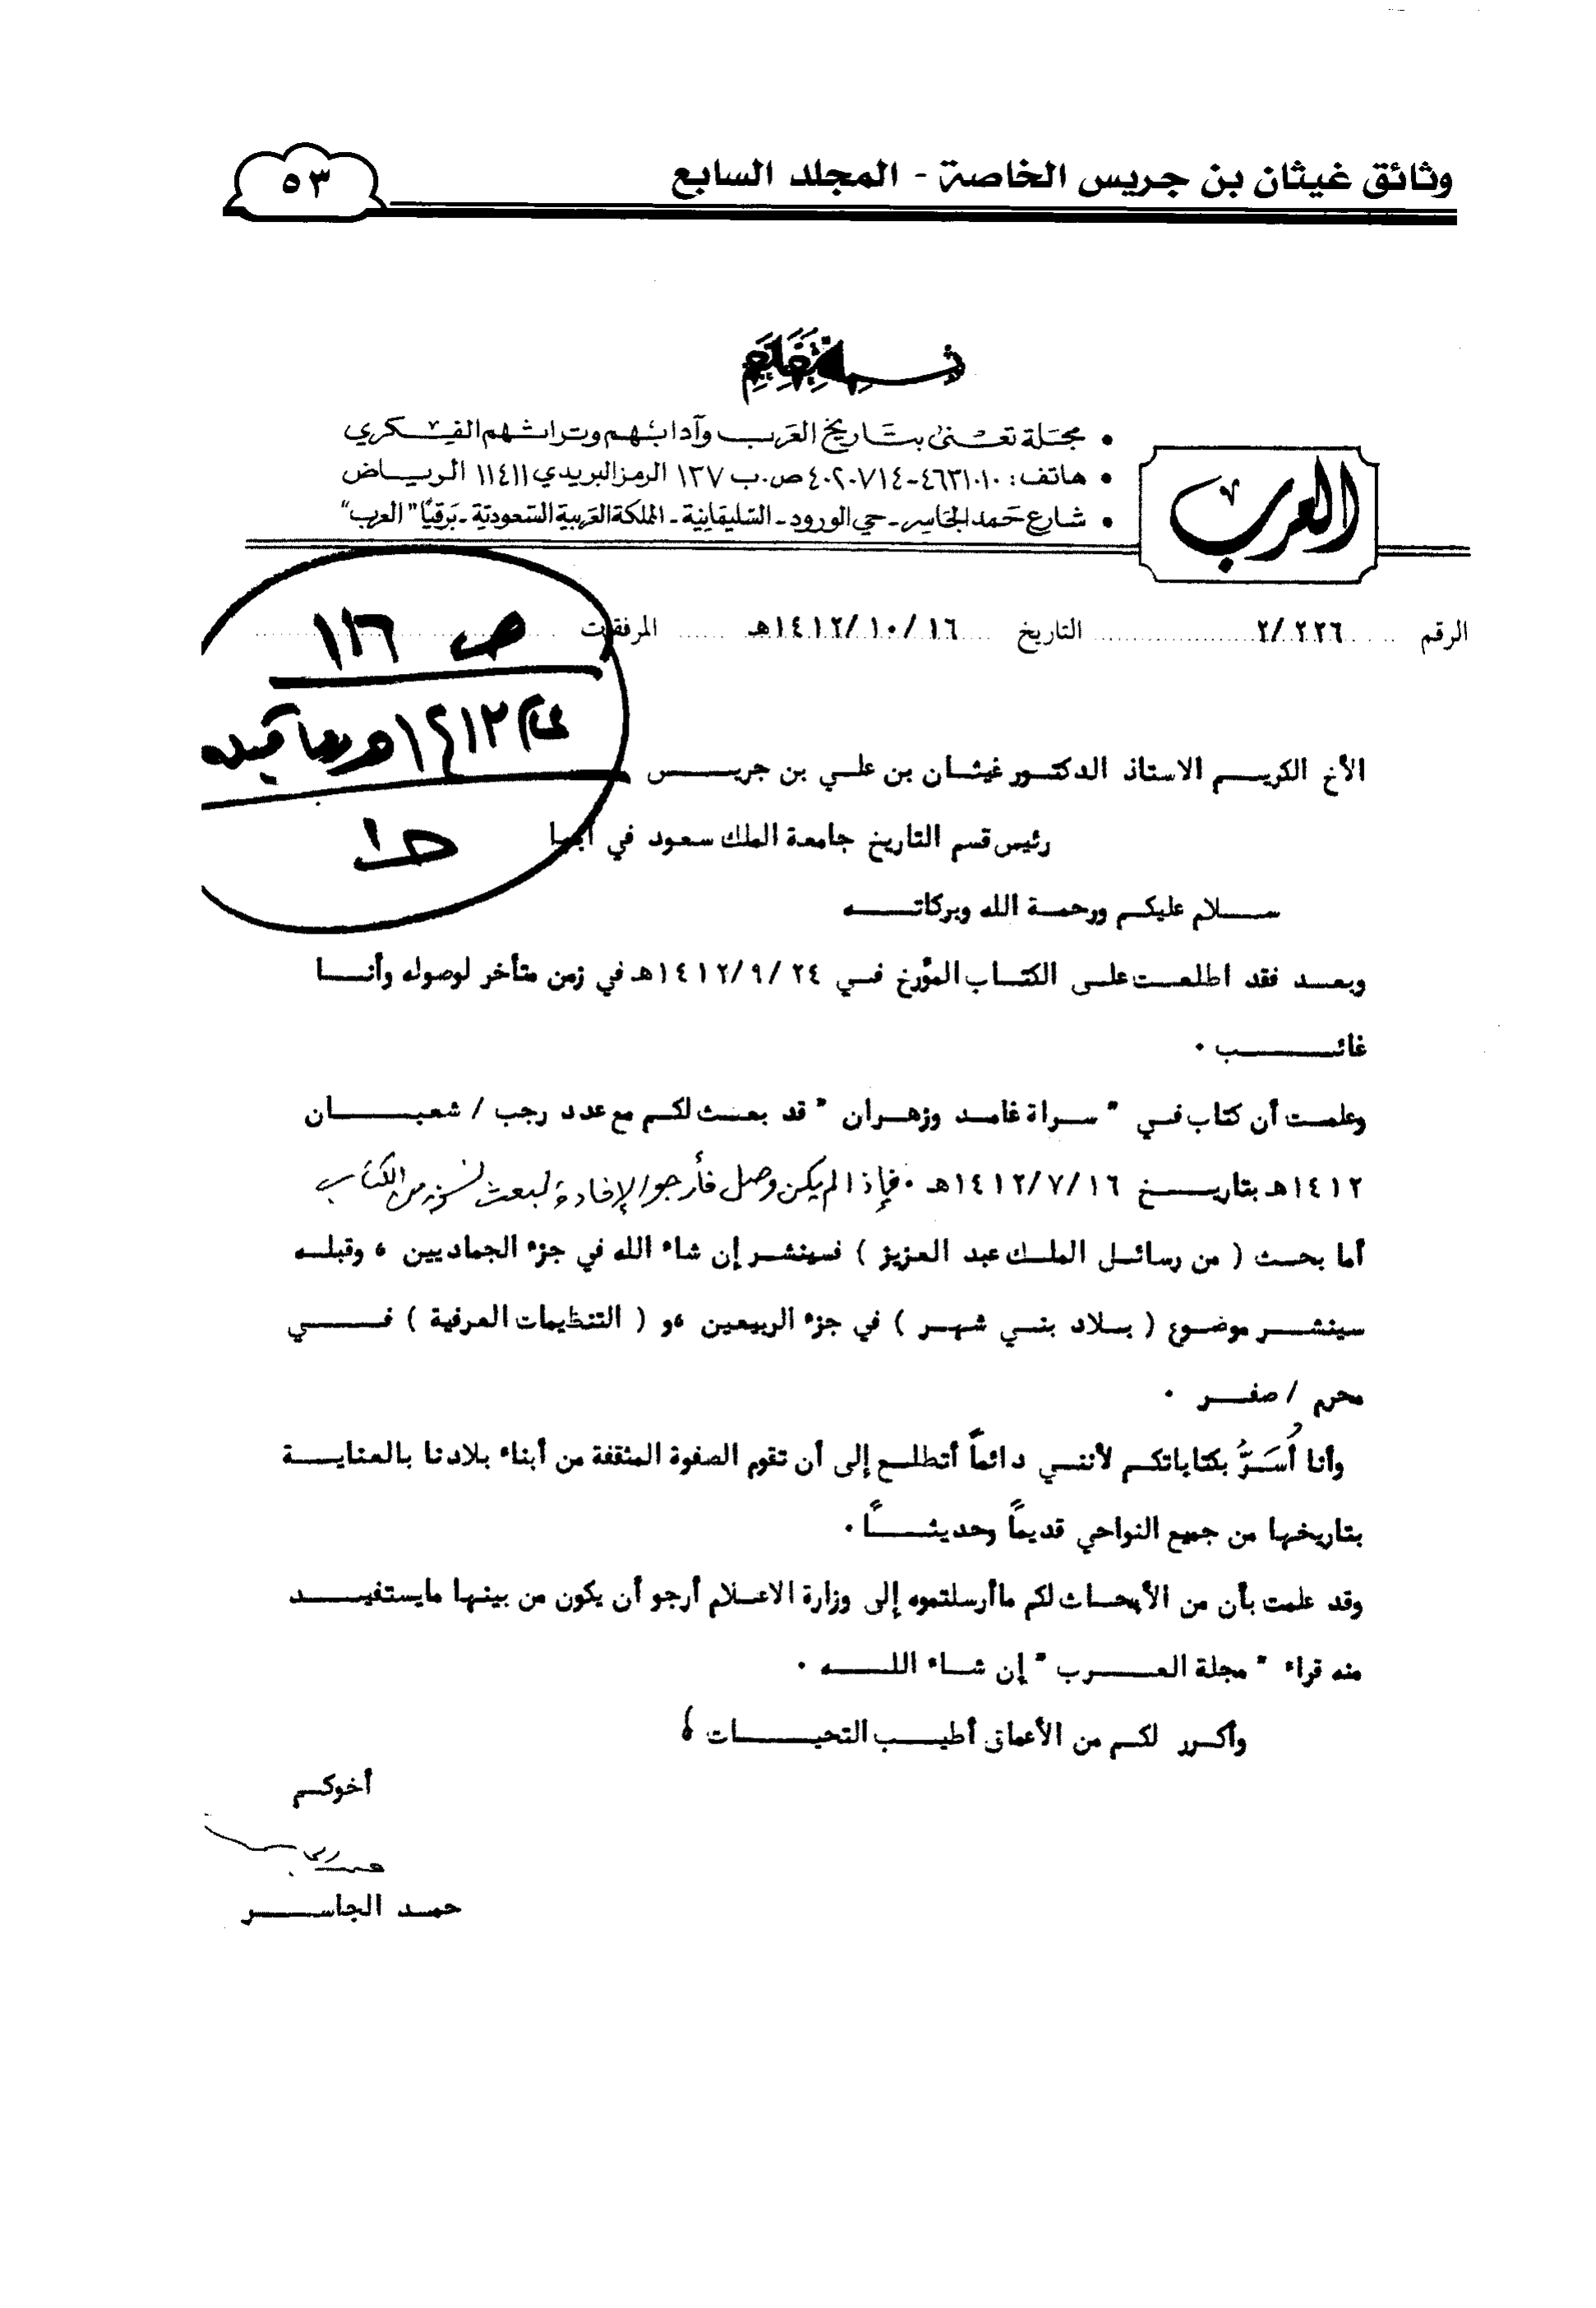 وثائق غيثان بن جريس الخاصة - المجلد السابع
٥٣
• مجلة تعنى بتاريخ العرب وآدابهم وتراثهم الفكري
• هاتف: ٤٦٣١٠١٠-٤٠٢٠٧١٤ ص.ب ١٣٧ الرمز البريدي ١١٤١١ الرياض
• شارع حمد الجاسر - حي الورود - السليمانية - المملكة العربية السعودية - برقيًا "العرب"
العرب
الرقم ٢/٢٢٦ التاريخ ١٤١٢/١٠/١٦هـ المرفقات
ص ١١٦
١٤١٢هـ
الأخ الكريم الاستاذ الدكتور غيثان بن علي بن جريس
رئيس قسم التاريخ جامعة الملك سعود في أبها
سلام عليكم ورحمة الله وبركاته
وبعد فقد اطلعت على الكتاب المؤرخ في ١٤١٢/٩/٢٤هـ في زمن متأخر لوصوله وأنا
غائب .
وعلمت أن كتاب في " سراة غامد وزهران " قد بعث لكم مع عدد رجب / شعبان
١٤١٢هـ بتاريخ ١٤١٢/٧/١٦هـ . فإذا لم يكن وصل فأرجو الإفادة لبعث نسخة من الكتاب
أما بحث ( من رسائل الملك عبد العزيز ) فسينشر إن شاء الله في جزء الجماديين ، وقبله
سينشر موضوع ( بلاد بني شهر ) في جزء الربيعين ،و ( التنظيمات العرفية ) في
محرم / صفر .
وأنا أُسَرُّ بكتاباتكم لأنني دائماً أتطلع إلى أن تقوم الصفوة المثقفة من أبناء بلادنا بالعناية
بتاريخها من جميع النواحي قديماً وحديثاً .
وقد علمت بأن من الأبحاث لكم ماأرسلتموه إلى وزارة الاعلام أرجو أن يكون من بينها مايستفيد
منه قراء " مجلة العرب " إن شاء الله .
وأكرر لكم من الأعماق أطيب التحيات ،
أخوكم
حمد الجاسر